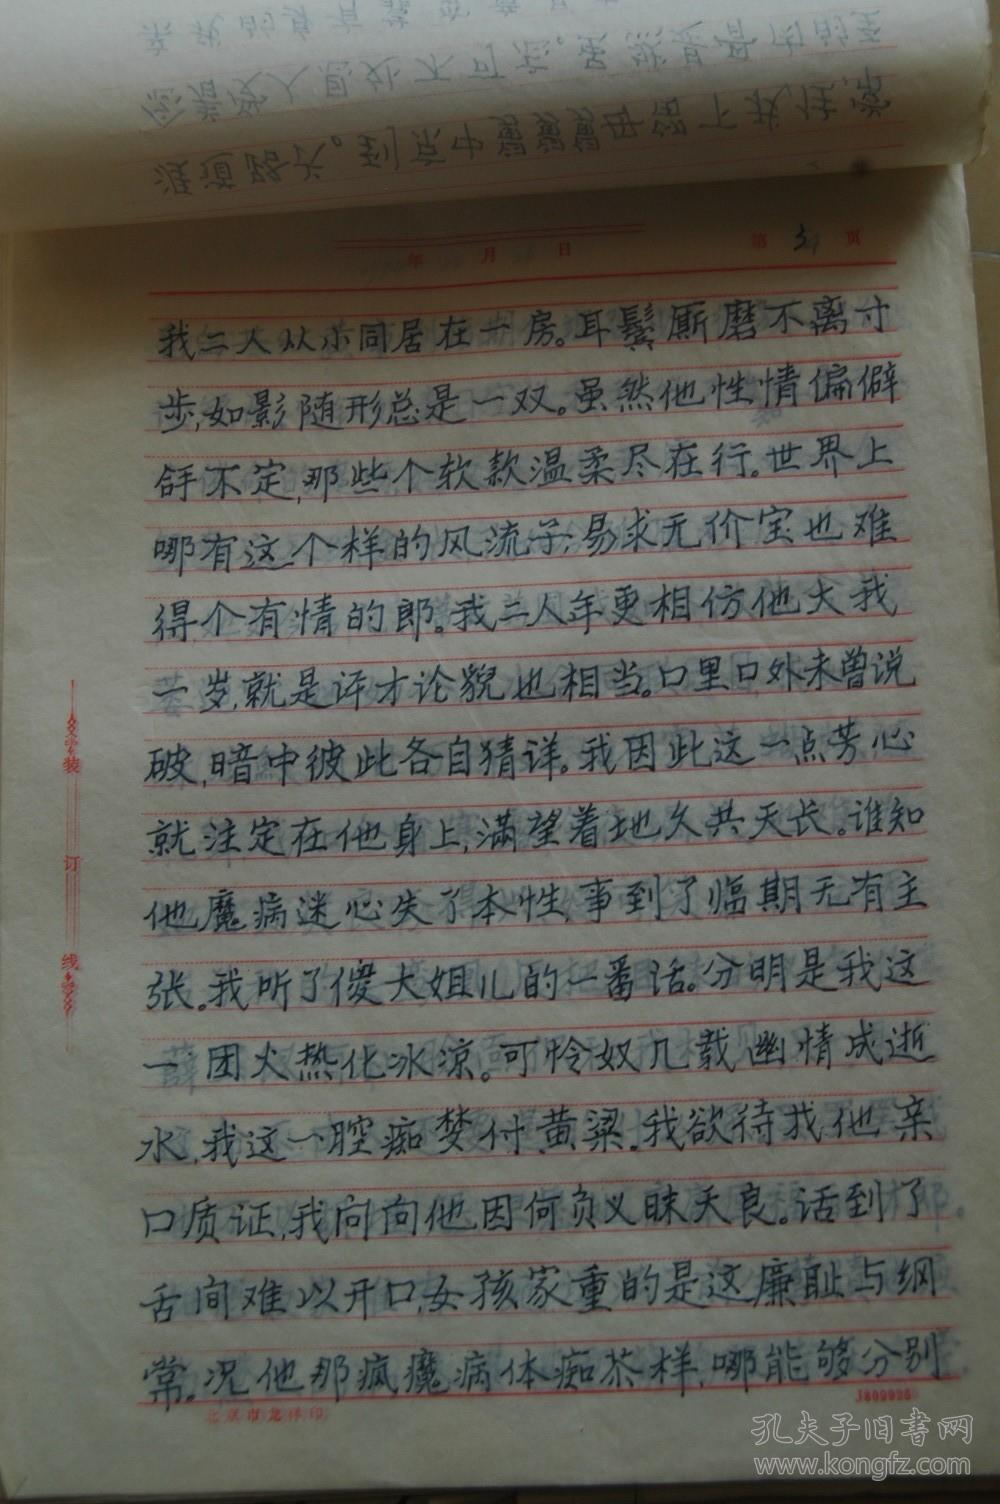 年 月 日
第 31 页
我二人从小同居在一房。耳鬓厮磨不离寸
步,如影随形总是一双。虽然他性情偏僻
拿不定,那些个软款温柔尽在行。世界上
哪有这个样的风流子,易求无价宝也难
得个有情的郎。我二人年更相仿他大我
一岁,就是评才论貌也相当。口里口外未曾说
破,暗中彼此各自猜详。我因此这一点芳心
就注定在他身上,满望着地久共天长。谁知
他魔病迷心失了本性,事到了临期无有主
张。我听了傻大姐儿的一番话。分明是我这
一团火热化冰凉。可怜奴几载幽情成逝
水,我这一腔痴梦付黄粱。我欲待我他亲
口质证,我问问他因何负义昧天良。话到了
舌间难以开口,女孩家重的是这廉耻与纲
常。况他那疯魔病体痴茶样,哪能够分别
装
订
线
J809998
孔夫子旧书网
www.kongfz.com